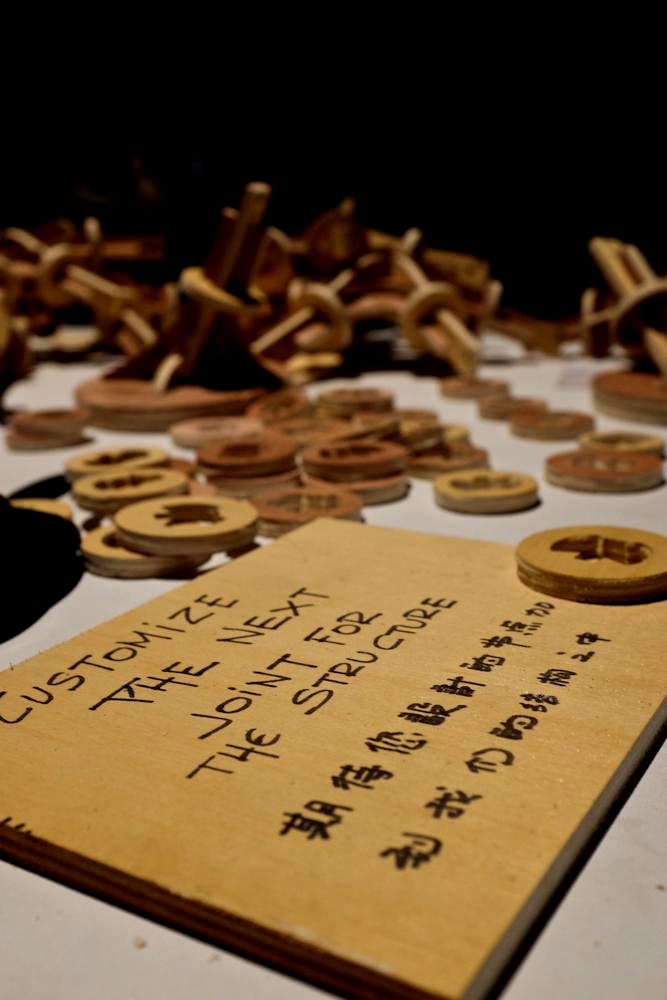 CUSTOMiZE
THE NEXT
JOiNT FOR
THE STRUCTURE
期待您設計的节点加
到我们的结构之中